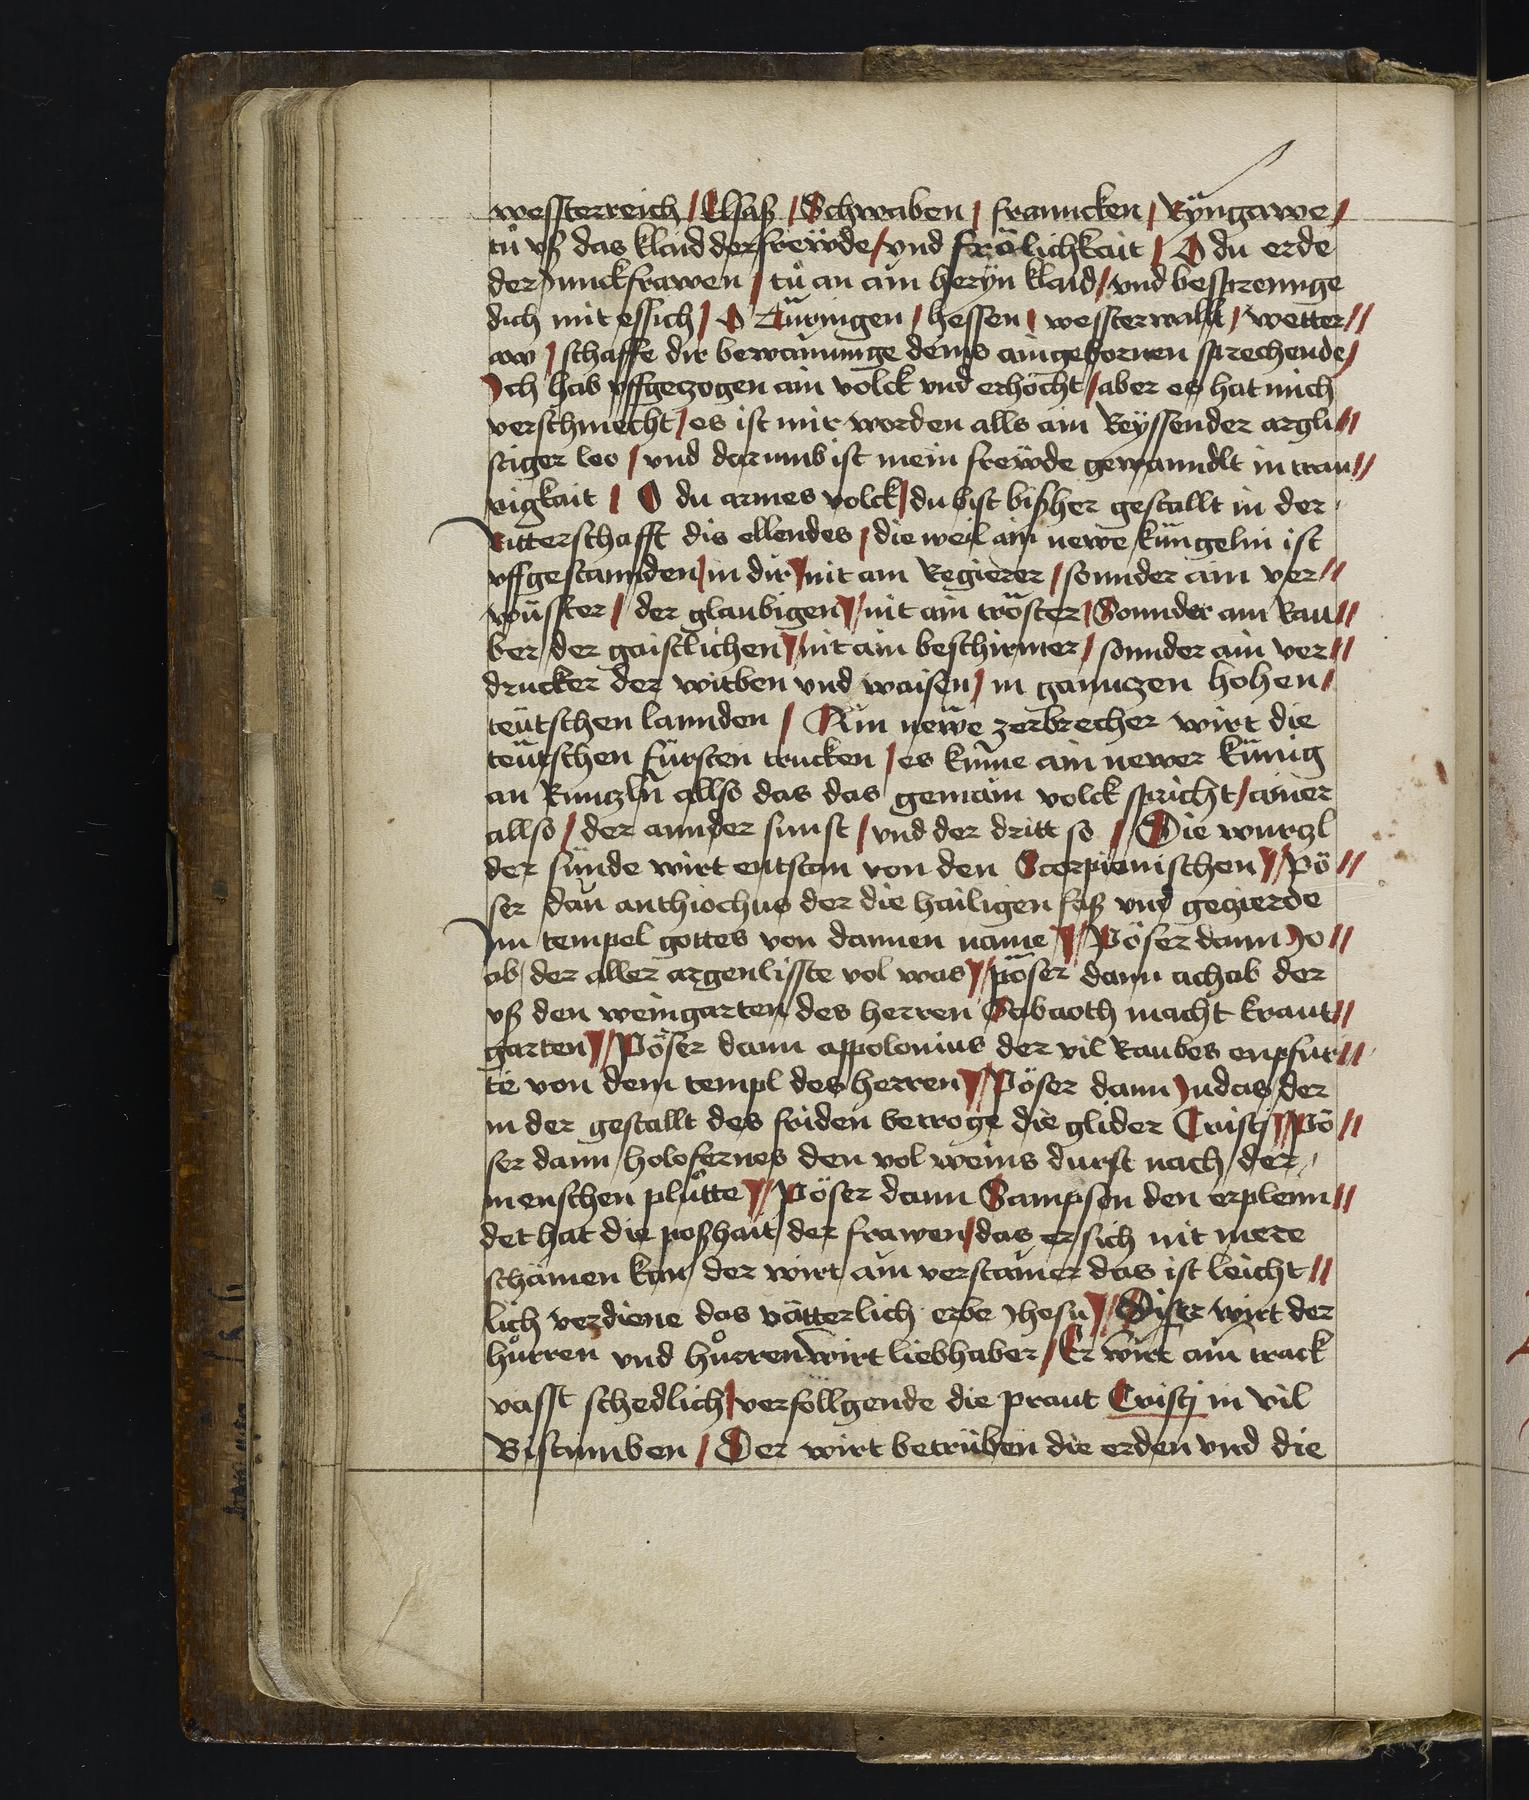 wessterreich / Elsaß / Schwaben / franncken / Ryngawe /
tů vß das klaid der frewde / vnd frölichkait / O du erde
der Junckfrawen / tů an ain heryn klaid / vnd besprennge
dich mit essich / O Düringen / hessen / wessterwallt / wetter //
aw / schaffe dir bewainunge deins aingebornen sprechende /
Ich hab vffgetzogen ain volck vnd erhöcht / aber es hat mich
verschmecht / es ist mir worden alls ain Reyssender argli //
stiger leo / vnd darumb ist mein frewde gewanndlt in trau //
rigkait / O du armes volck / du bist bißher gestallt in der
Ritterschafft dis ellendes / die weil ain newe küngelin ist
vffgestannden / in dir / nit ain Regierer / sonnder ain ver //
wüsster / der glaubigen / nit ain tröster / Sonnder ain Rau //
ber der gaistlichen / nit ain beschirmer / sonnder ain ver //
drucker der witben vnd waisen / in ganntzen hohen /
teütschen lannden / Ain newe zerbrecher wirt die
teütschen fürsten trucken / es kume ain newer künig
an Runtzln allso das das gemain volck spricht / ainer
allso / der annder sunst / vnd der dritt so / Die wurtzl
der sünde wirt entstan von den Scorpionischen // Pö //
ser dan anthiochus der die hailigen faß vnd getzierde
Im tempel gottes von dannen name // Pöser dann Jo //
ab der aller argenlisste vol was // pöser dann achab der
vß den weingarten des herren Sabaoth macht kraut //
garten // Pöser dann appolonius der vil Raubes enpfur //
te von dem templ des herren // Pöser dann Judas der
in der gestallt des friden betroge die glider Cristj // Pö //
ser dann holofernes den vol weins durst nach der
menschen plůtte // Pöser dann Sampson den erplenn //
det hat die poßhait der frawen / das er sich nit mere
schämen kan der wirt ain verstainer das ist leicht //
lich verdiene das vätterlich erbe Jhesu // Diser wirt der
hůrren vnd hůrrenwirt liebhaber / Er wirt ain track
vasst schedlich / verfollgende die praut Cristj in vil
Bistumben / Der wirt betrüben die erden vnd die